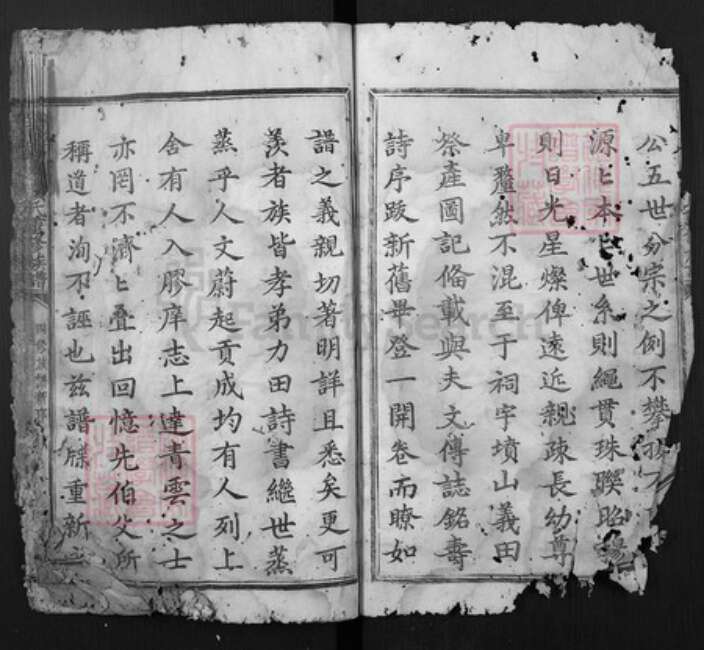 公五世分宗之例不攀
源〻本〻世系則繩貫珠聯昭
則日光星燦俾遠近親疎長幼尊
卑釐然不混至于祠宇墳山義田
祭產圖記俻載與夫文傳誌銘壽
詩序跋新舊畢登一開卷而瞭如
譜之義親切著明詳且悉矣更可
羨者族皆孝弟力田詩書繼世蒸
蒸乎人文蔚起貢成均有人列上
舍有人入膠庠志上達青雲之士
亦罔不濟〻疊出回憶先伯父所
稱道者洵不誣也兹譜牒重新
FamilySearch